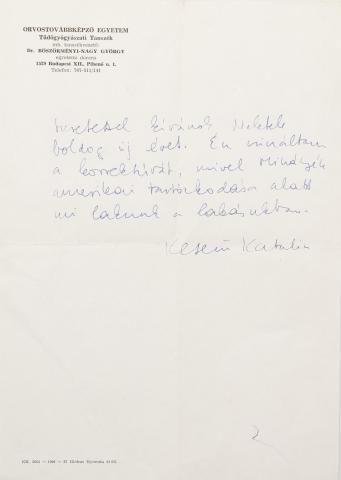 ORVOSTOVÁBBKÉPZŐ EGYETEM
Tüdőgyógyászati Tanszék
mb. tanszékvezető:
Dr. BÖSZÖRMÉNYI-NAGY GYÖRGY
egyetemi docens
1529 Budapest XII., Pihenő u. 1.
Telefon: 767-311/141
Szeretettel kívánok Nektek
boldog új évet. Én csináltam
a korrektúrát, mivel Mihályék
amerikai tartózkodása alatt
mi laktunk a lakásukban.
Keserü Katalin